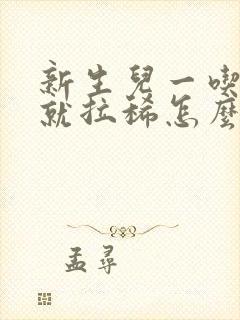 新生兒一喫
就拉稀怎麼
孟尋